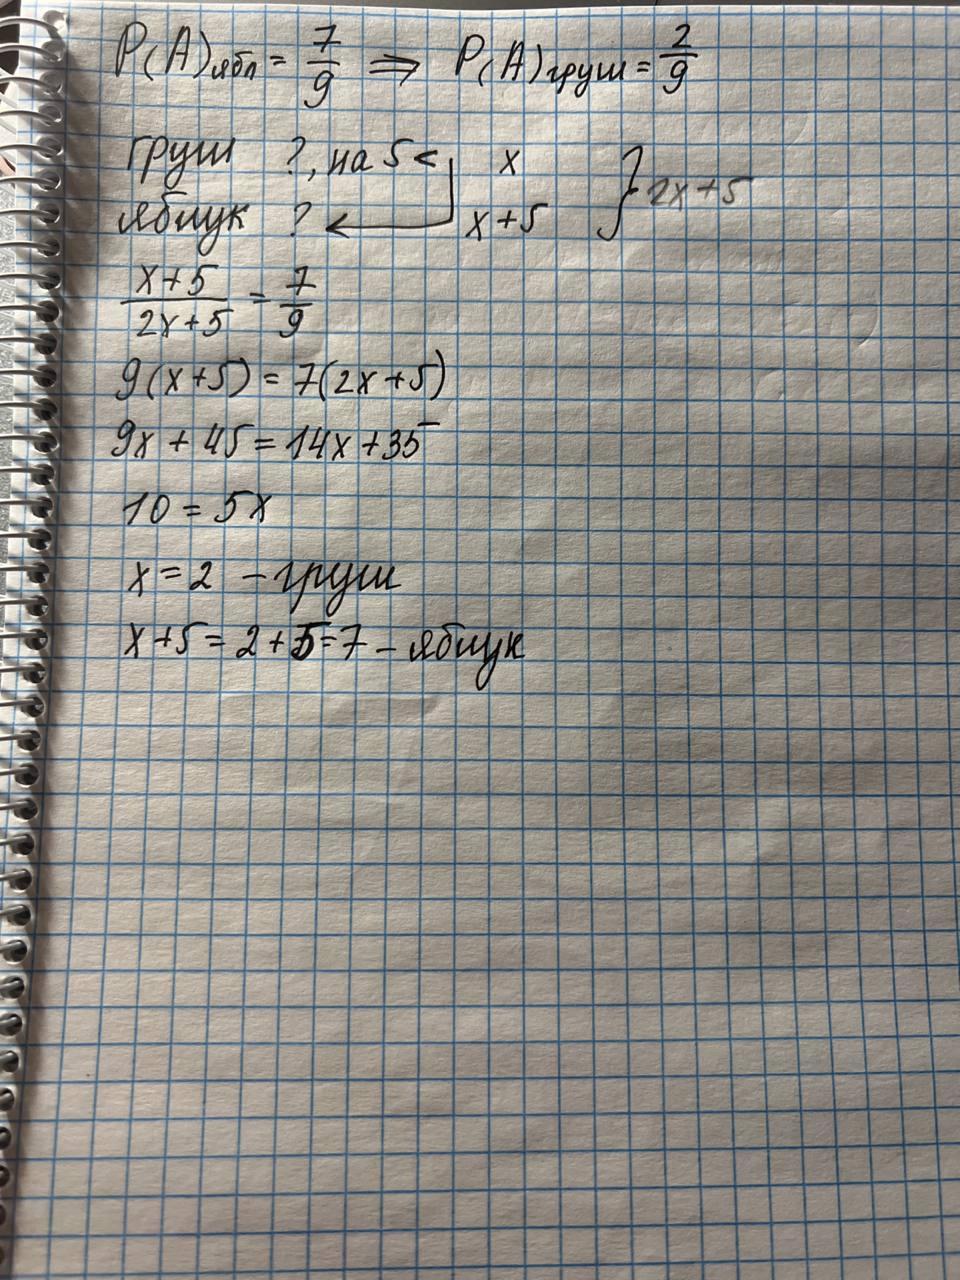 P(A)ябл = 7/9 ⇒ P(A)груш = 2/9
груш ?, на 5 < x } 2x+5
яблук ? x+5
(x+5)/(2x+5) = 7/9
9(x+5) = 7(2x+5)
9x + 45 = 14x + 35
10 = 5x
x = 2 – груш
x+5 = 2+5=7 – яблук